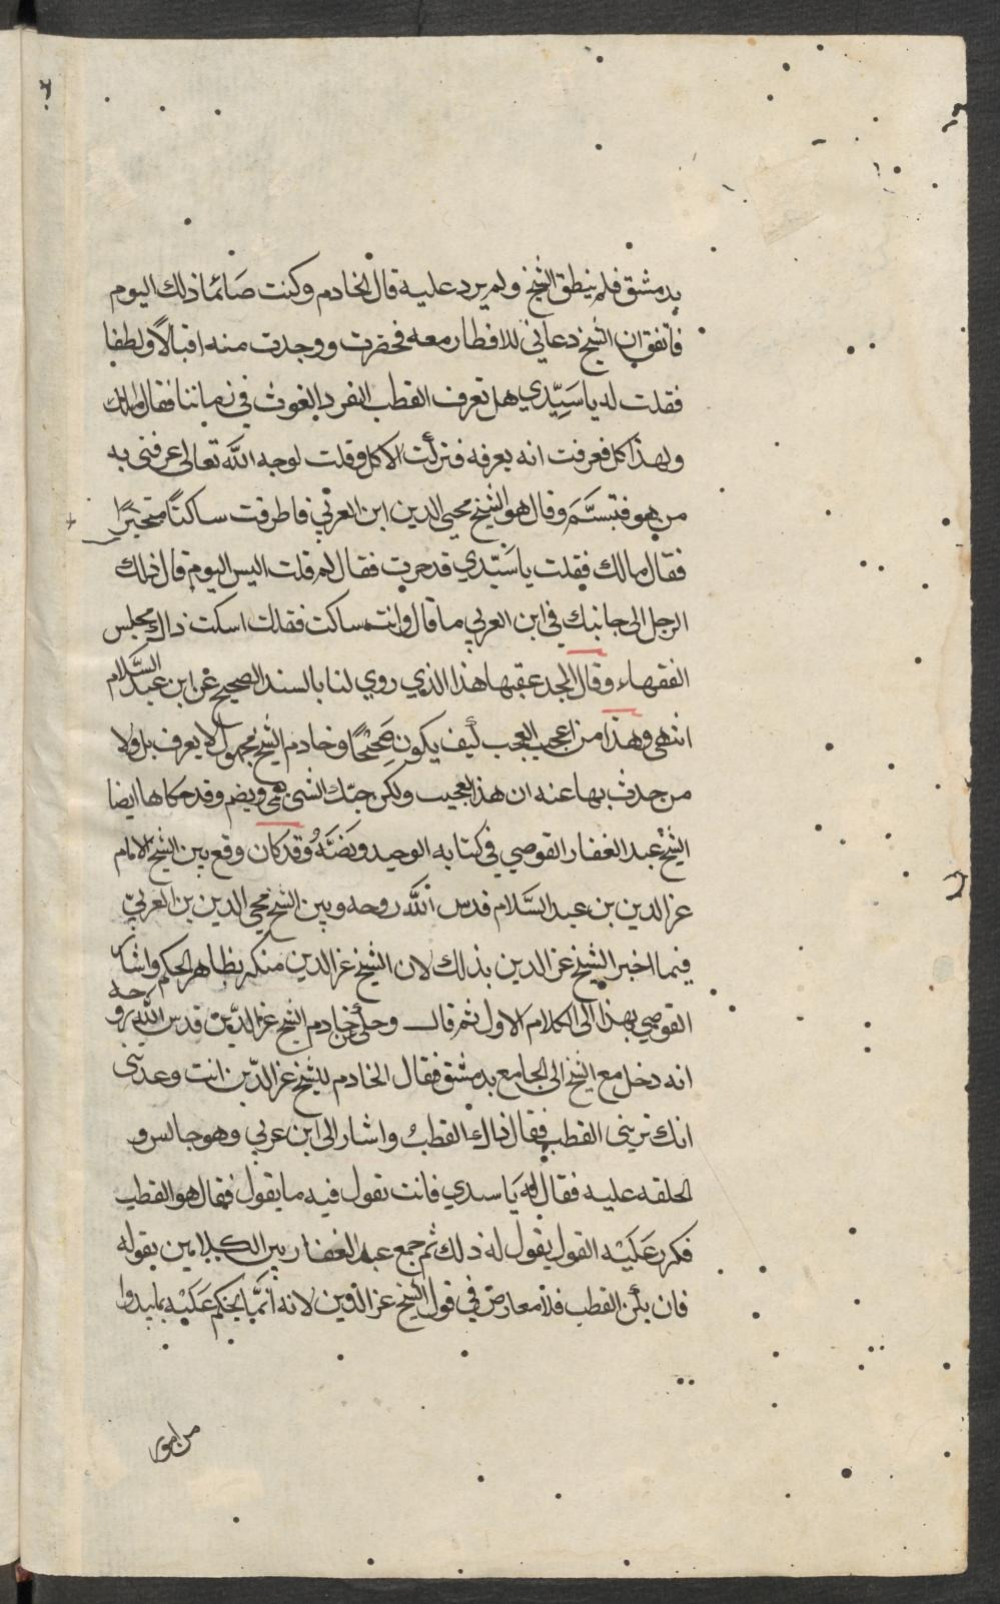 بدمشق فلم ينطق الشيخ ولم يرد عليه قال الخادم وكنت صَائمًا ذلك اليوم
فاتفق ان الشيخ دعاني للافطار معه فحضرت ووجدت منه اقبالاً ولطفا
فقلت له يا سَيِّدي هل تعرف القطب الفرد الغوث في زماننا فقال مالك
ولهذا كل فعرفت انه يعرفه فتركت الاكل وقلت لوجه الله تعالى عرفني به
من هو فتبسَّمَ وقال هو الشيخ محيي الدين ابن العربي فاطرقت ساكتًا متحيرًا
فقال مالك فقلت يا سَيّدي قد حرت فقال لم قلت اليس اليوم قال ذلك
الرجل الى جانبك في ابن العربي ما قال وانت ساكت فقال اسكت ذاك مجلس
الفقهاء وقال المجد عقبها هذا الذي روي لنا بالسند الصحيح عن ابن عبد السَّلام
انتهى وهذا من اعجب العجب كيف يكون صَحيحًا وخادم الشيخ مجهول لا يعرف بل ولا
من حدث بها عنه ان هذا لعجيب ولكن حبّك الشئ يعمي ويصم وقد حكاها ايضا
الشيخ عبد الغفار القوصي في كتابه الوحيد ونصّهُ وقد كان وقع بين الشيخ الامام
عز الدين بن عبد السَّلام قدس الله روحه وبين الشيخ محيي الدين بن العربيّ
فيما اخبر الشيخ عز الدين بذلك لان الشيخ عز الدين منكر بظاهر الحكم واشار
القوصي بهذا الى الكلام الاول ثم قال وحكي عن خادم الشيخ عز الدّين قدس الله روحه
انه دخل مع الشيخ الى الجامع بدمشق فقال الخادم للشيخ عز الدّين انت وعدتني
انك تريني القطب فقال ذاك القطبُ واشار الى ابن عربي وهو جالس و
الحلقه عليه فقال له يَا سيدي فانت تقول فيه ما تقول فقال هو القطب
فكرر عَليْه القول يقول له ذلك ثم جمع عبد الغفار بين الكلامين بقوله
فان يكن القطب فلا معارض في قول الشيخ عز الدين لانه انمَّا يحكم عَليْه بما يبدوا
من امور